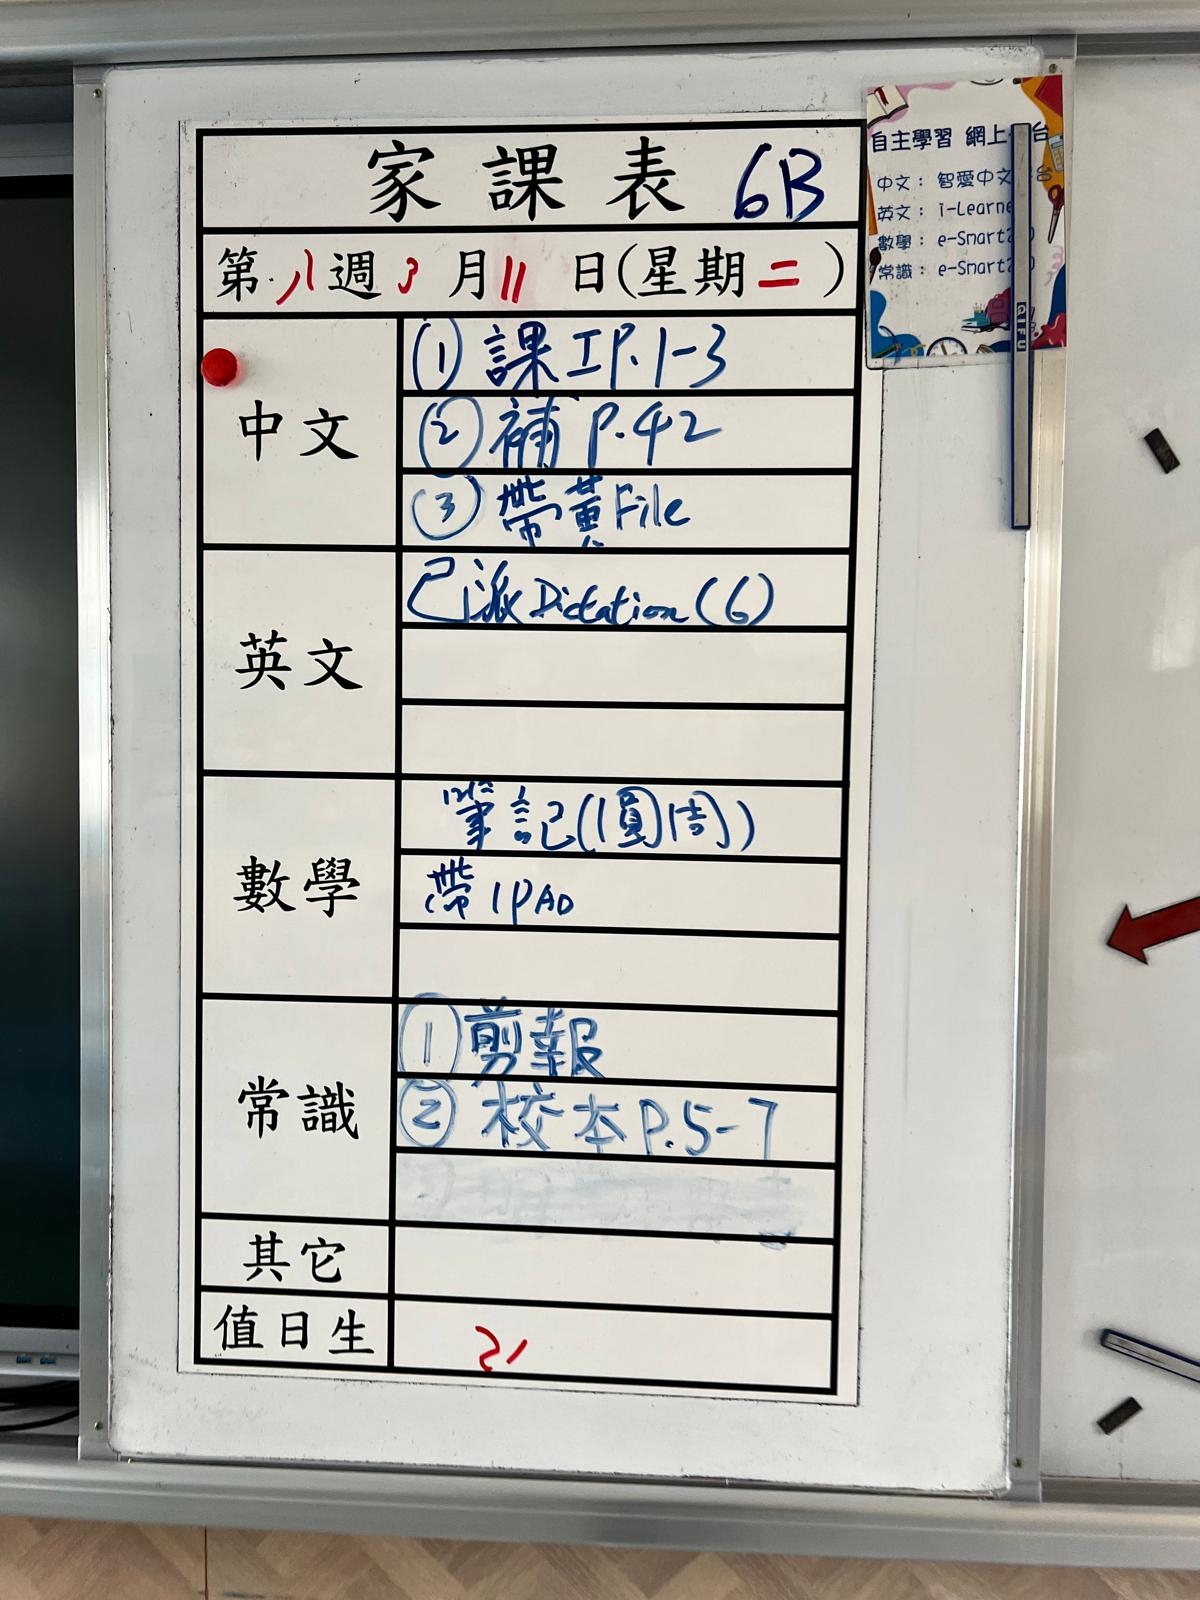 家課表 6B
第八週3月11日(星期二)
中文
① 課工P.1-3
② 補 P.42
③ 帶黃File
英文
已派Dictation(6)
數學
筆記(圓周)
帶IPAD
常識
① 剪報
② 校本P.5-7
其它
值日生
21
自主學習 網上 台
中文: 智愛中文 台
英文: i-Learne
數學: e-Smart2 0
常識: e-Smart2 0